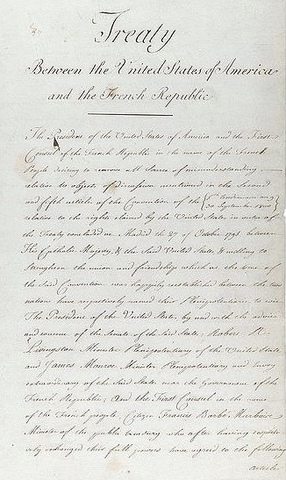 Treaty
Between the United States of America
and the French Republic
The President of the United States of America and the First
Consul of the French Republic in the name of the French
People desiring to remove all Source of misunderstanding
relative to objects of discussion mentioned in the Second
and fifth articles of the Convention of the
relative to the rights claimed by the United States in virtue of
the Treaty concluded at Madrid the 27 of October 1795, between
His Catholic Majesty, & the Said United States, & willing to
Strengthen the union and friendship which at the time of
the Said Convention was happily reestablished between the two
nations have respectively named their Plenipotentiaries to wit
The President of the United States, by and with the advice
and consent of the Senate of the Said States; Robert R.
Livingston Minister Plenipotentiary of the United States
and James Monroe Minister Plenipotentiary and Envoy
extraordinary of the Said States near the Government of the
French Republic; And the First Consul in the name
of the French people, Citizen Francis Barbé Marbois
Minister of the public treasury who after having respectively
exchanged their full powers have agreed to the following
articles